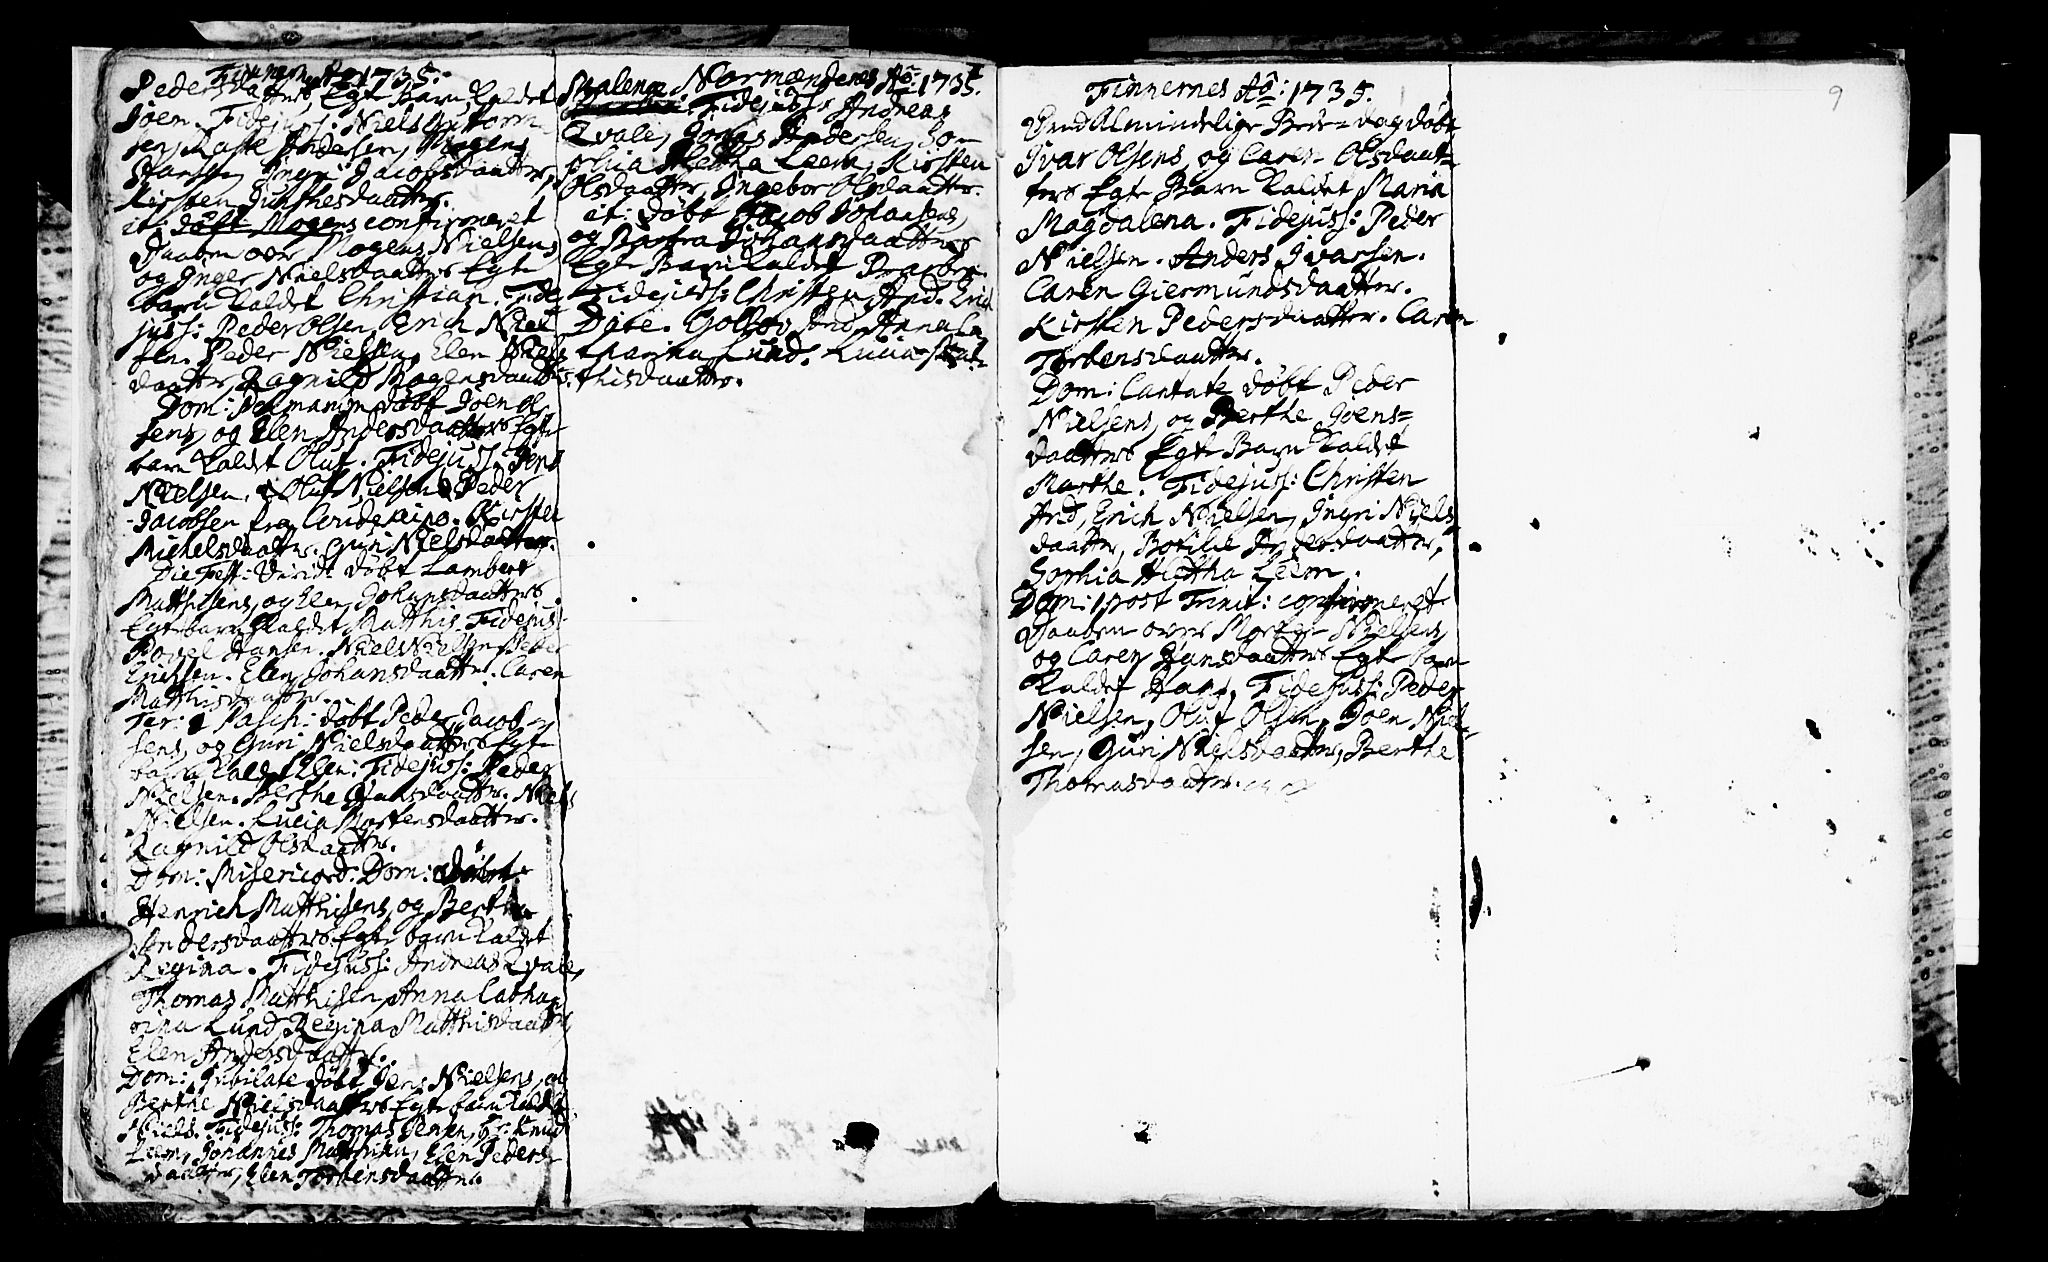 Finnernes Ao 1735.
Pedersdaatters Egte Barn kaldet
Joen. Fidejuss: Niels Guttorm-
sen, Andersen, Mogens
Hansen, Ingri Jacobsdaatter,
Kirsten Gunthesdaatter.
it: døbt Mogens confirmeret
Daaben over Mogens Nielsens
og Inger Nielsdaatters Egte
barn kaldet Christian. Fide
juss: Peder Olsen, Erich Niel
sen. Peder Nielsen, Elen Niels
daatter, Ragnild Mogensdaatter.
Dom: Palmarum døbt Joen Ol
sens, og Elen Andersdaatters Egte
barn kaldet Oluf. Fidejuss: Jens
Nielsen, Oluf Nielsen Peder
Jacobsen fra Kirsten
Michelsdaatter. Guri Nielsdaatter.
Die Fest: Virid: døbt Lambert
Matthisens, og Elen Johansdaatters
Egte barn kaldet Matthis. Fidejuss:
Povel Hansen. Niels Nielsen Peder
Erichsen. Elen Johansdaatter. Caren
Matthisdaatter.
Fer: 2 Pasch: døbt Peder Jacob
sens, og Guri Nielsdaatters Egte
barn kaldet Elen: Fidejuss: Peder
Nielsen. Berthe Hansdaatter. Niels
Nielsen. Lucia Mortensdaatter.
Ragnild Olsdaatter.
Dom: Misericord: Dom: døbt
Henrich Matthisens, og Berthe
Andersdaatters Egte barn kaldet
Regina. Fidejuss: Andreas Qvale,
Thomas Matthisen, Anna Catha
rina Lund, Regina Matthisdaatter,
Elen Andersdaatter.
Dom: Jubilate døbt Jens Nielsens, og
Berthe Nielsdaatters Egte barn kaldet
Niels. Fidejuss: Thomas Jensen, Hr: Knud
Leem, Johannes Matthisen, Elen Peders-
daatter, Elen Torbensdaatter.
Normændenes Ao: 1735.
Fidejuss: Andreas
Qvale, Jonas Andersen, So
phia Hettha Leem, Kirsten
Olsdaatter, Ingebor Olsdaatter.
it: døbt Jacob Johansens,
og Barbra Johansdaatters
Egte Barn kaldet
Fidejuss: Christen And. Erich
Dare. And, Anna Ca
tharina Lund. Lucia Mat-
thisdaatter.
Finnernes Ao: 1735.
9
Almindelige Bede-dag døbt
Ivar Olsens, og Caren Olsdaat-
ters Egte Barn kaldet Maria
Magdalena. Fidejuss: Peder
Nielsen. Anders Ivarsen.
Caren Giermundsdaatter.
Kirsten Pedersdaatter. Caren
Torbensdaatter.
Dom: Cantate døbt Peder
Nielsens, og Berthe Joens-
daatters Egte Barn kaldet
Marthe. Fidejuss: Christen
And, Erich Nielsen, Ingri Niels
daatter, Botilde Pedersdaatter,
Sophia Hettha Leem.
Dom: 1 post Trinit: confirmeret
Daaben over Morten Nielsens
og Caren Hansdaatters Egte barn
kaldet Hans. Fidejuss: Peder
Nielsen, Oluf Olsen, Joen Niel-
sen, Guri Nielsdaatter, Berthe
Thomasdaatter.